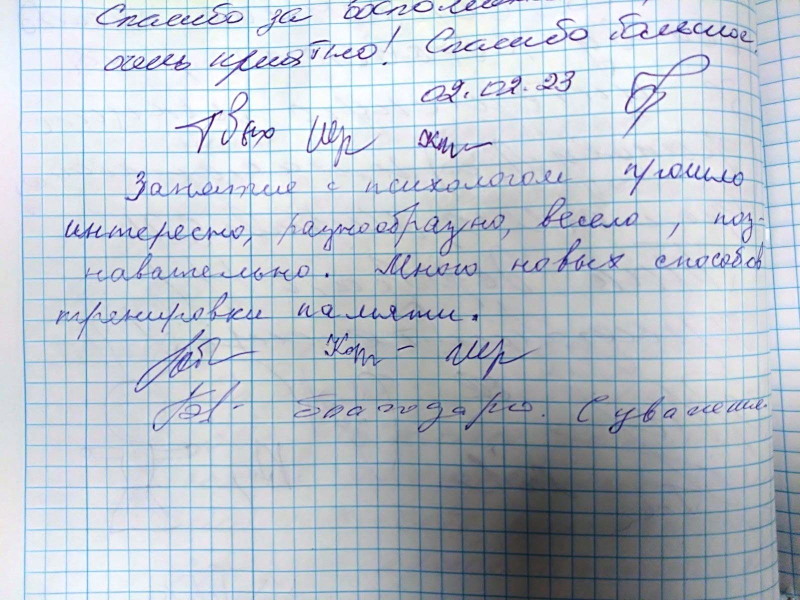 Спасибо за
очень приятно! Спасибо большое.
02.02.23
Занятие с психологом прошло
интересно, разнообразно, весело, поз-
навательно. Много новых способов
тренировки памяти.
благодарю. С уважение